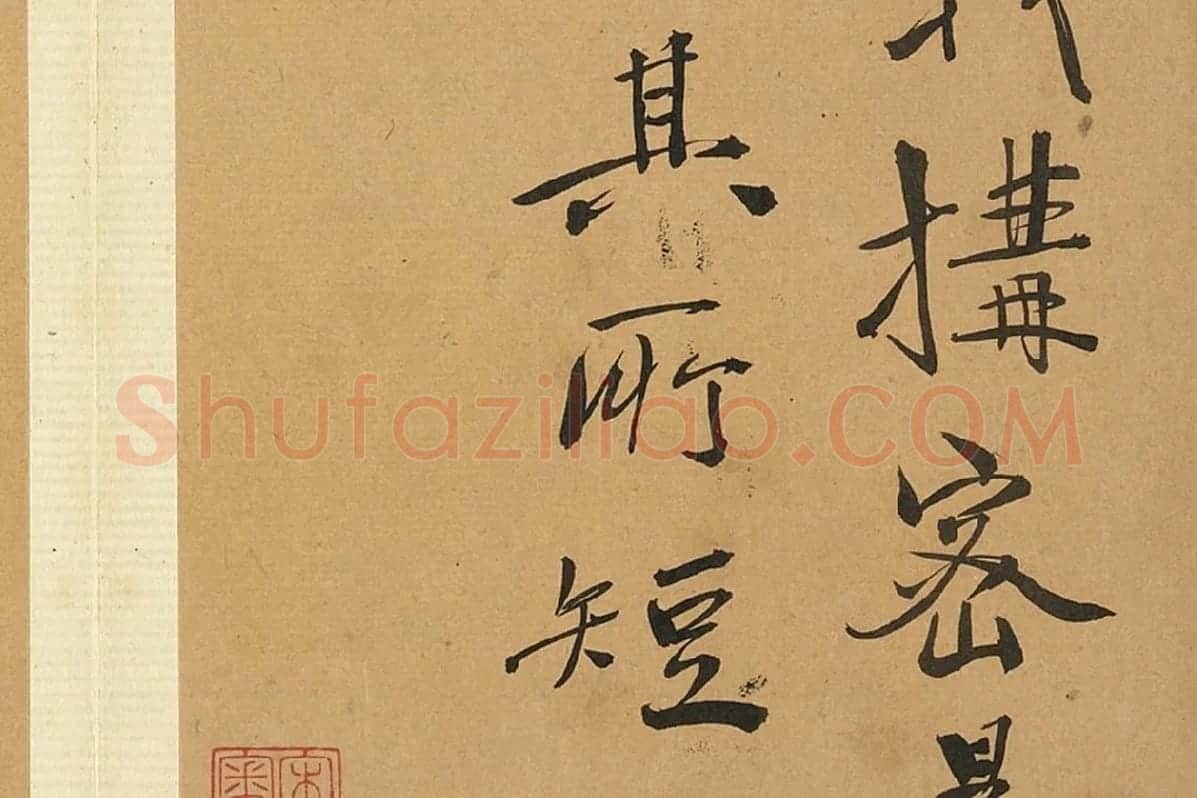 搆密是
其所短
Shufaziliao.COM